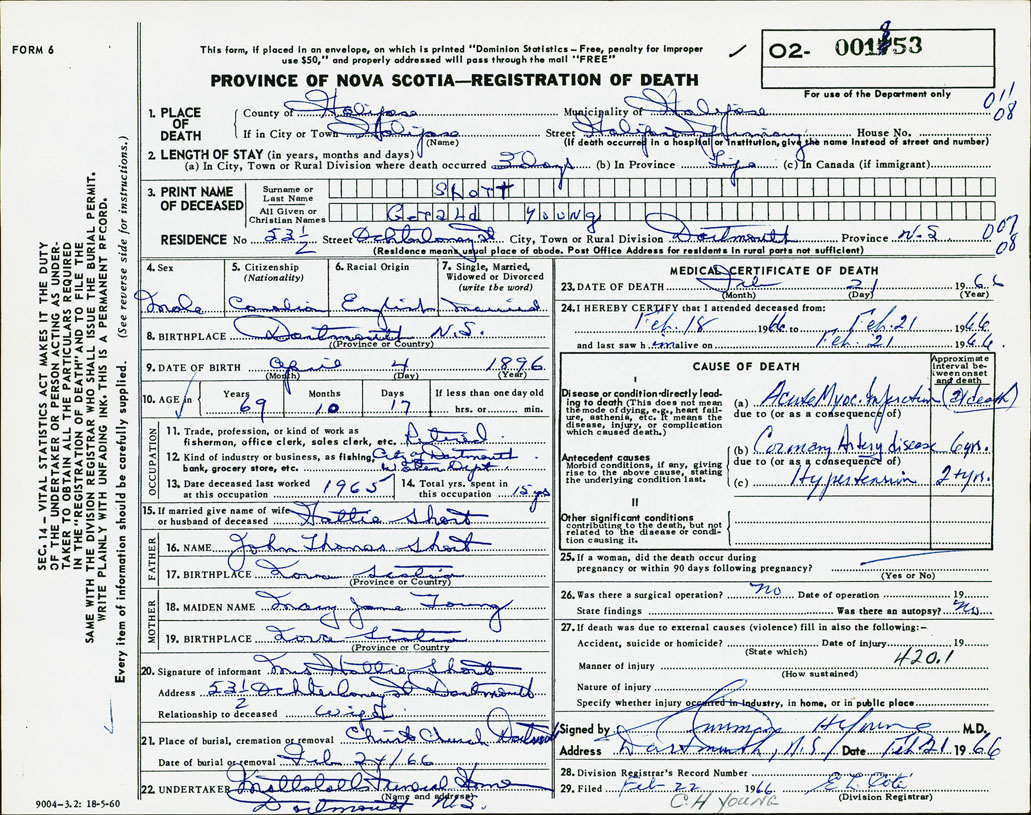 FORM 6
This form, if placed in an envelope, on which is printed "Dominion Statistics – Free, penalty for improper
use $50," and properly addressed will pass through the mail "FREE"
PROVINCE OF NOVA SCOTIA—REGISTRATION OF DEATH
O2- 001853
For use of the Department only
011
08
1. PLACE OF DEATH
County of Halifax Municipality of Halifax
If in City or Town Halifax Street Halifax Infirmary House No.
(Name) (If death occurred in a hospital or institution, give the name instead of street and number)
2. LENGTH OF STAY (in years, months and days)
(a) In City, Town or Rural Division where death occurred 3 Days (b) In Province Life (c) In Canada (if immigrant)
3. PRINT NAME OF DECEASED
Surname or Last Name SHORT
All Given or Christian Names Gerald Young
RESIDENCE No 53 1/2 Street Ochterloney St City, Town or Rural Division Dartmouth Province N.S
007
08
(Residence means usual place of abode. Post Office Address for residents in rural parts not sufficient)
4. Sex
Male
5. Citizenship (Nationality)
Canadian
6. Racial Origin
English
7. Single, Married, Widowed or Divorced (write the word)
Married
8. BIRTHPLACE Dartmouth N.S.
(Province or Country)
9. DATE OF BIRTH April 4 1896
(Month) (Day) (Year)
10. AGE in Years 69 Months 10 Days 17 If less than one day old hrs. or min.
OCCUPATION
11. Trade, profession, or kind of work as fisherman, office clerk, sales clerk, etc. Retired
12. Kind of industry or business, as fishing, bank, grocery store, etc. City of Dartmouth Water Dept.
13. Date deceased last worked at this occupation 1965
14. Total yrs. spent in this occupation 15 yrs
15. If married give name of wife or husband of deceased Hattie Short
FATHER
16. NAME John Thomas Short
17. BIRTHPLACE Nova Scotia
(Province or Country)
MOTHER
18. MAIDEN NAME Mary Jane Young
19. BIRTHPLACE Nova Scotia
(Province or Country)
20. Signature of informant Mrs Hattie Short
Address 53 1/2 Ochterloney St Dartmouth
Relationship to deceased wife
21. Place of burial, cremation or removal Christ Church Dartmouth
Date of burial or removal Feb 24/66
22. UNDERTAKER Funeral Home
(Name and address)
Dartmouth N.S.
9004-3.2: 18-5-60
MEDICAL CERTIFICATE OF DEATH
23. DATE OF DEATH Feb 21 1966
(Month) (Day) (Year)
24. I HEREBY CERTIFY that I attended deceased from:
Feb. 18 1966 to Feb. 21 1966
and last saw him alive on Feb. 21 1966.
CAUSE OF DEATH
Approximate interval between onset and death
I
Disease or condition directly leading to death (This does not mean the mode of dying, e.g., heart failure, asthenia, etc. It means the disease, injury, or complication which caused death.)
(a) Acute Myoc. Infarction (3/death)
due to (or as a consequence of)
Antecedent causes
Morbid conditions, if any, giving rise to the above cause, stating the underlying condition last.
(b) Coronary Artery disease 6 yrs.
due to (or as a consequence of)
(c) Hypertension 2+yrs.
II
Other significant conditions
contributing to the death, but not related to the disease or condition causing it.
25. If a woman, did the death occur during pregnancy or within 90 days following pregnancy?
(Yes or No)
26. Was there a surgical operation? No Date of operation 19
State findings Was there an autopsy? No
27. If death was due to external causes (violence) fill in also the following:–
Accident, suicide or homicide? Date of injury 19
(State which)
420.1
Manner of injury
(How sustained)
Nature of injury
Specify whether injury occurred in industry, in home, or in public place
Signed by H. Young M.D.
Address Dartmouth, N.S. Date Feb 21 1966
28. Division Registrar's Record Number
29. Filed Feb 22 1966
(Division Registrar)
C.H YOUNG
SEC. 14 – VITAL STATISTICS ACT MAKES IT THE DUTY
OF THE UNDERTAKER OR PERSON ACTING AS UNDER-
TAKER TO OBTAIN ALL THE PARTICULARS REQUIRED
IN THE "REGISTRATION OF DEATH" AND TO FILE THE
SAME WITH THE DIVISION REGISTRAR WHO SHALL ISSUE THE BURIAL PERMIT.
WRITE PLAINLY WITH UNFADING INK. THIS IS A PERMANENT RECORD.
Every item of information should be carefully supplied. (See reverse side for instructions.)